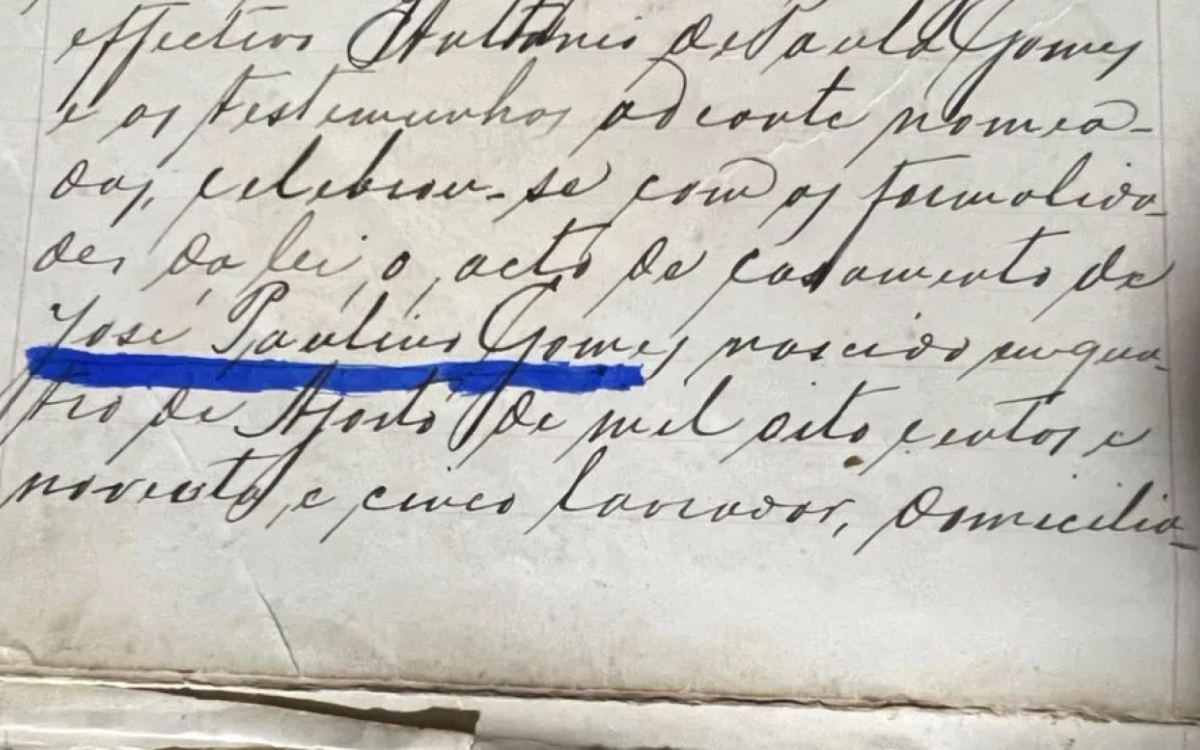 effectivo Antonio de Paula Gomes
e as testemunhas adeante nomea-
das, celebrou-se com as formalida-
des da lei, o acto de casamento de
José Paulino Gomes nascido em qua-
tro de Agosto de mil oito centos e
noventa e cinco lavrador, domicilia-